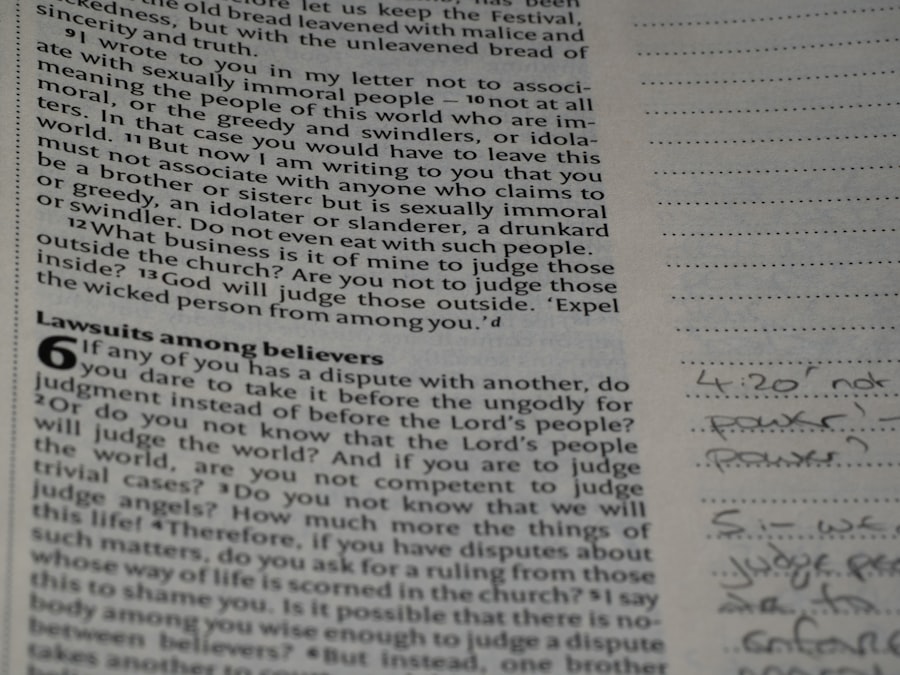 let us keep the Festival,
the old bread leavened with malice and
wickedness, but with the unleavened bread of
sincerity and truth.
9 I wrote to you in my letter not to associ-
ate with sexually immoral people – 10 not at all
meaning the people of this world who are im-
moral, or the greedy and swindlers, or idola-
ters. In that case you would have to leave this
world. 11 But now I am writing to you that you
must not associate with anyone who claims to
be a brother or sister c but is sexually immoral
or greedy, an idolater or slanderer, a drunkard
or swindler. Do not even eat with such people.
12 What business is it of mine to judge those
outside the church? Are you not to judge those
inside? 13 God will judge those outside. ‘Expel
the wicked person from among you.’ d
Lawsuits among believers
6 If any of you has a dispute with another, do
you dare to take it before the ungodly for
judgment instead of before the Lord’s people?
2 Or do you not know that the Lord’s people
will judge the world? And if you are to judge
the world, are you not competent to judge
trivial cases? 3 Do you not know that we will
judge angels? How much more the things of
this life! 4 Therefore, if you have disputes about
such matters, do you ask for a ruling from those
whose way of life is scorned in the church? 5 I say
this to shame you. Is it possible that there is no-
body among you wise enough to judge a dispute
between believers? 6 But instead, one brother
takes another to
4:20 ' not
power' –
power?
5:- we
judge
to